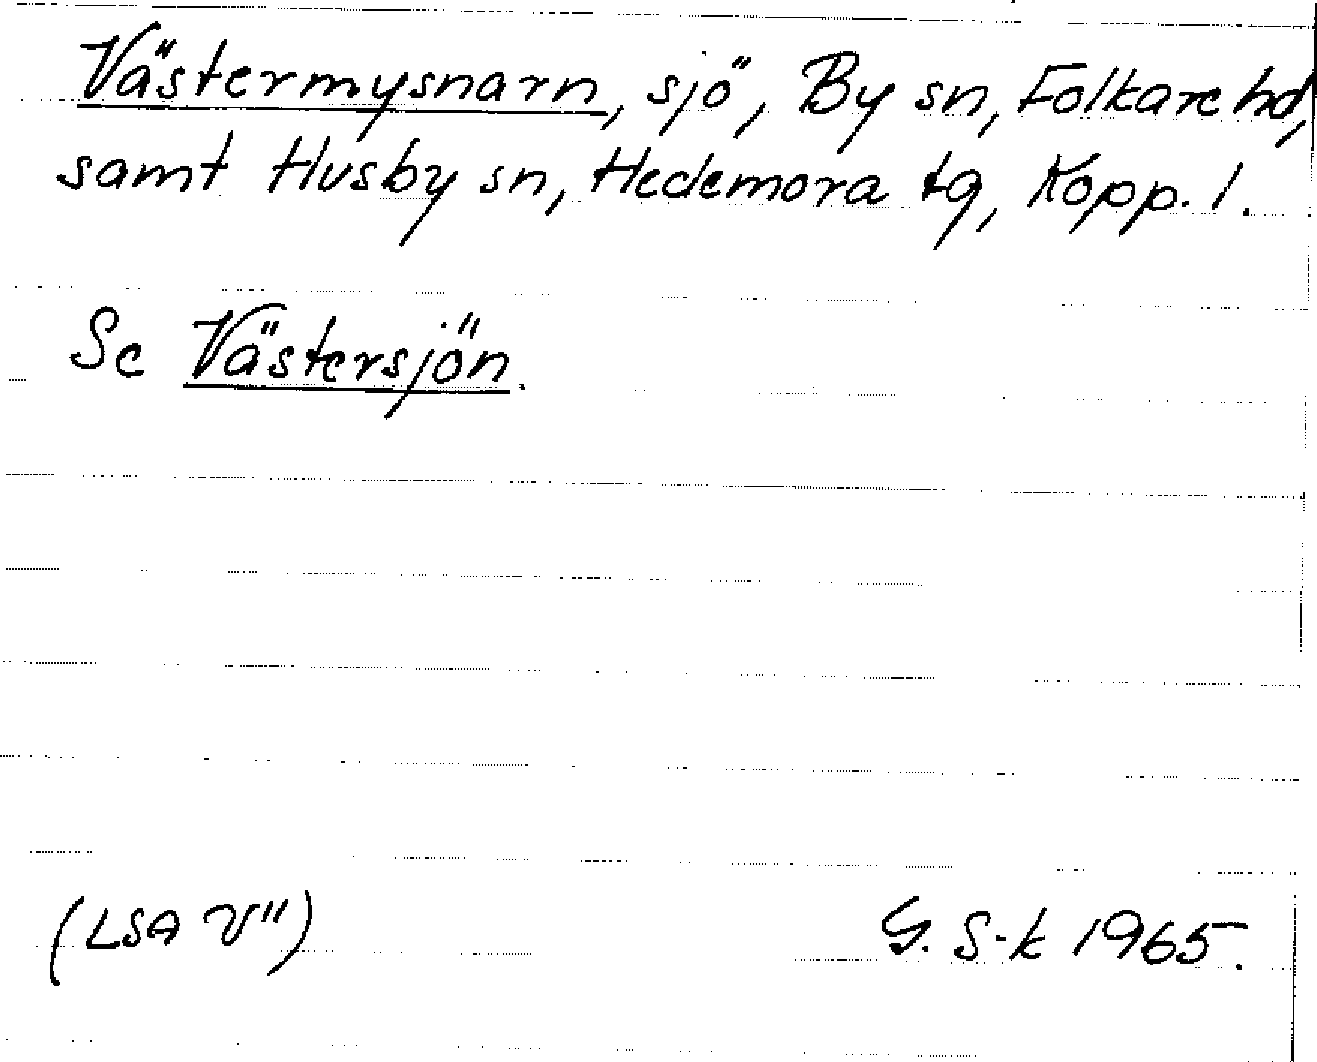 Västermysnarn, sjö, By sn, Folkare hd,
samt Husby sn, Hedemora tg, Kopp. l.
Se Västersjön.
(LSA V") G. S-k 1965.